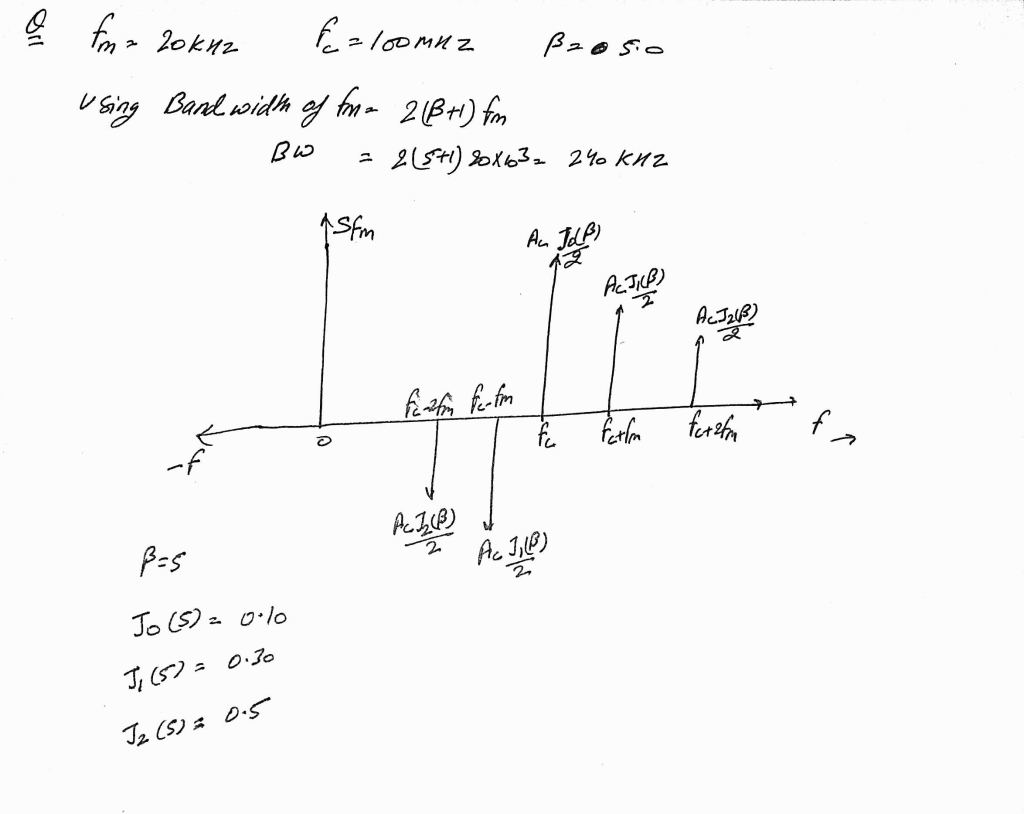 Q fm = 20KHZ fc = 100MHZ β = 5.0
Using Bandwidth of fm = 2(β+1) fm
BW = 2(5+1) 20x10³ = 240 KHZ
Sfm
Ac J0(β)/2
Ac J1(β)/2
Ac J2(β)/2
fc-2fm fc-fm
-f 0 fc fc+fm fc+2fm f
Ac J2(β)/2
Ac J1(β)/2
β=5
J0 (5) = 0.10
J1 (5) = 0.30
J2 (5) = 0.5